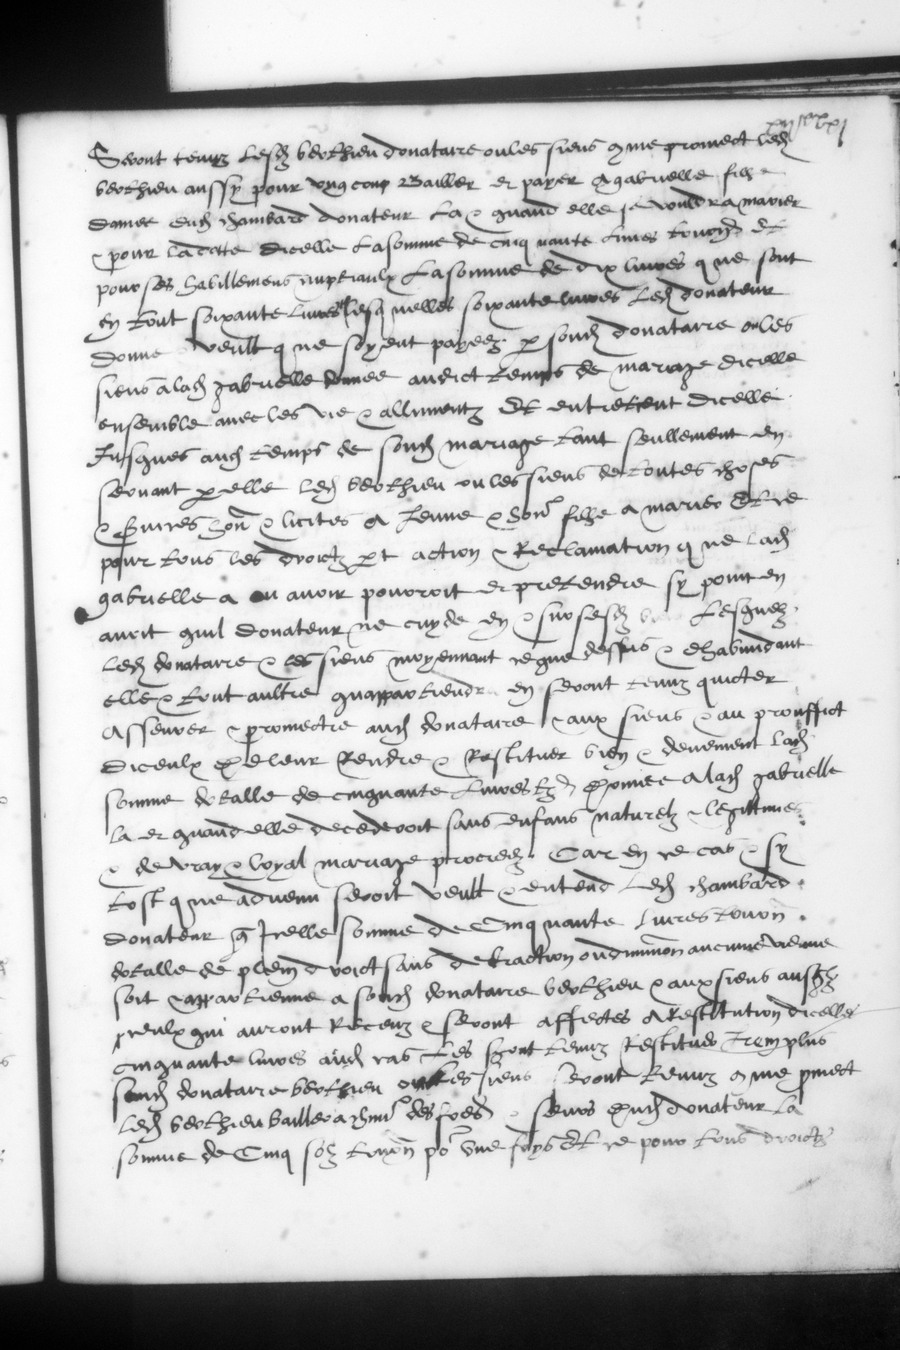 Seront tenuz lesd berthieu donataire ou les siens come promect led
berthieu aussy pour ung coup Bailler et payer a gabrielle fille
donnee dud chambard donateur La et quand elle se vouldra marier
et pour la dicelle La somme de cinquante livres tourn Et
pour ses habillemens nuptiaulx La somme de dix livres que sont
en tout soixante livres lesquelles soixante livres Led donateur
donne veult que soyent payees par sond donataire ou les
siens a lad gabrielle donnee audict temps de mariage dicelle
ensemble avec les vie et allimentz Et entretent dicelle
Jusques aud temps de sond mariage tant seullement en
servant par elle led berthieu ou les siens de toutes choses
et licites a Jeune et fille a marier Et ce
pour tous les droictz part action et Reclamation que lad
gabrielle a ou avoir pouvroit et pretendre sy point en
avoit quil donateur ne cuyde en et sur sesd Lesquelz
Led donataire et les siens moyennant ce que dessus et
elle et tout aultre quappartiendra en seront tenuz quicter
Asseurer et promectre aud donataire et aux siens et au prouffict
Diceulx de leur Rendre et Restituer bien et deuement Lad
somme dotalle de cinquante Livres tz donnee A lad gabrielle
la et quand elle decederoit sans enfans naturelz et legittimes
et de vray et loyal mariage procreez Car en ce cas et sy
tost que advenu seroit veult et entend Led chambard
donateur que Icelle somme de Cinquante livres tourn
dotalle de plein droict sans detraction ou diminution aucune vienne
soit et appartienne a sond donataire berthieu et aux siens
ceulx qui auront Receuz et seront affectes a Restitution dicelle
cinquante livres aud cas Les seront tenuz Restituer Item plus
sond donataire berthieu ou les siens seront tenuz come promect
Led berthieu bailler a des et dud donateur La
somme de Cinq solz tourn po une foys Et ce pour tous droictz